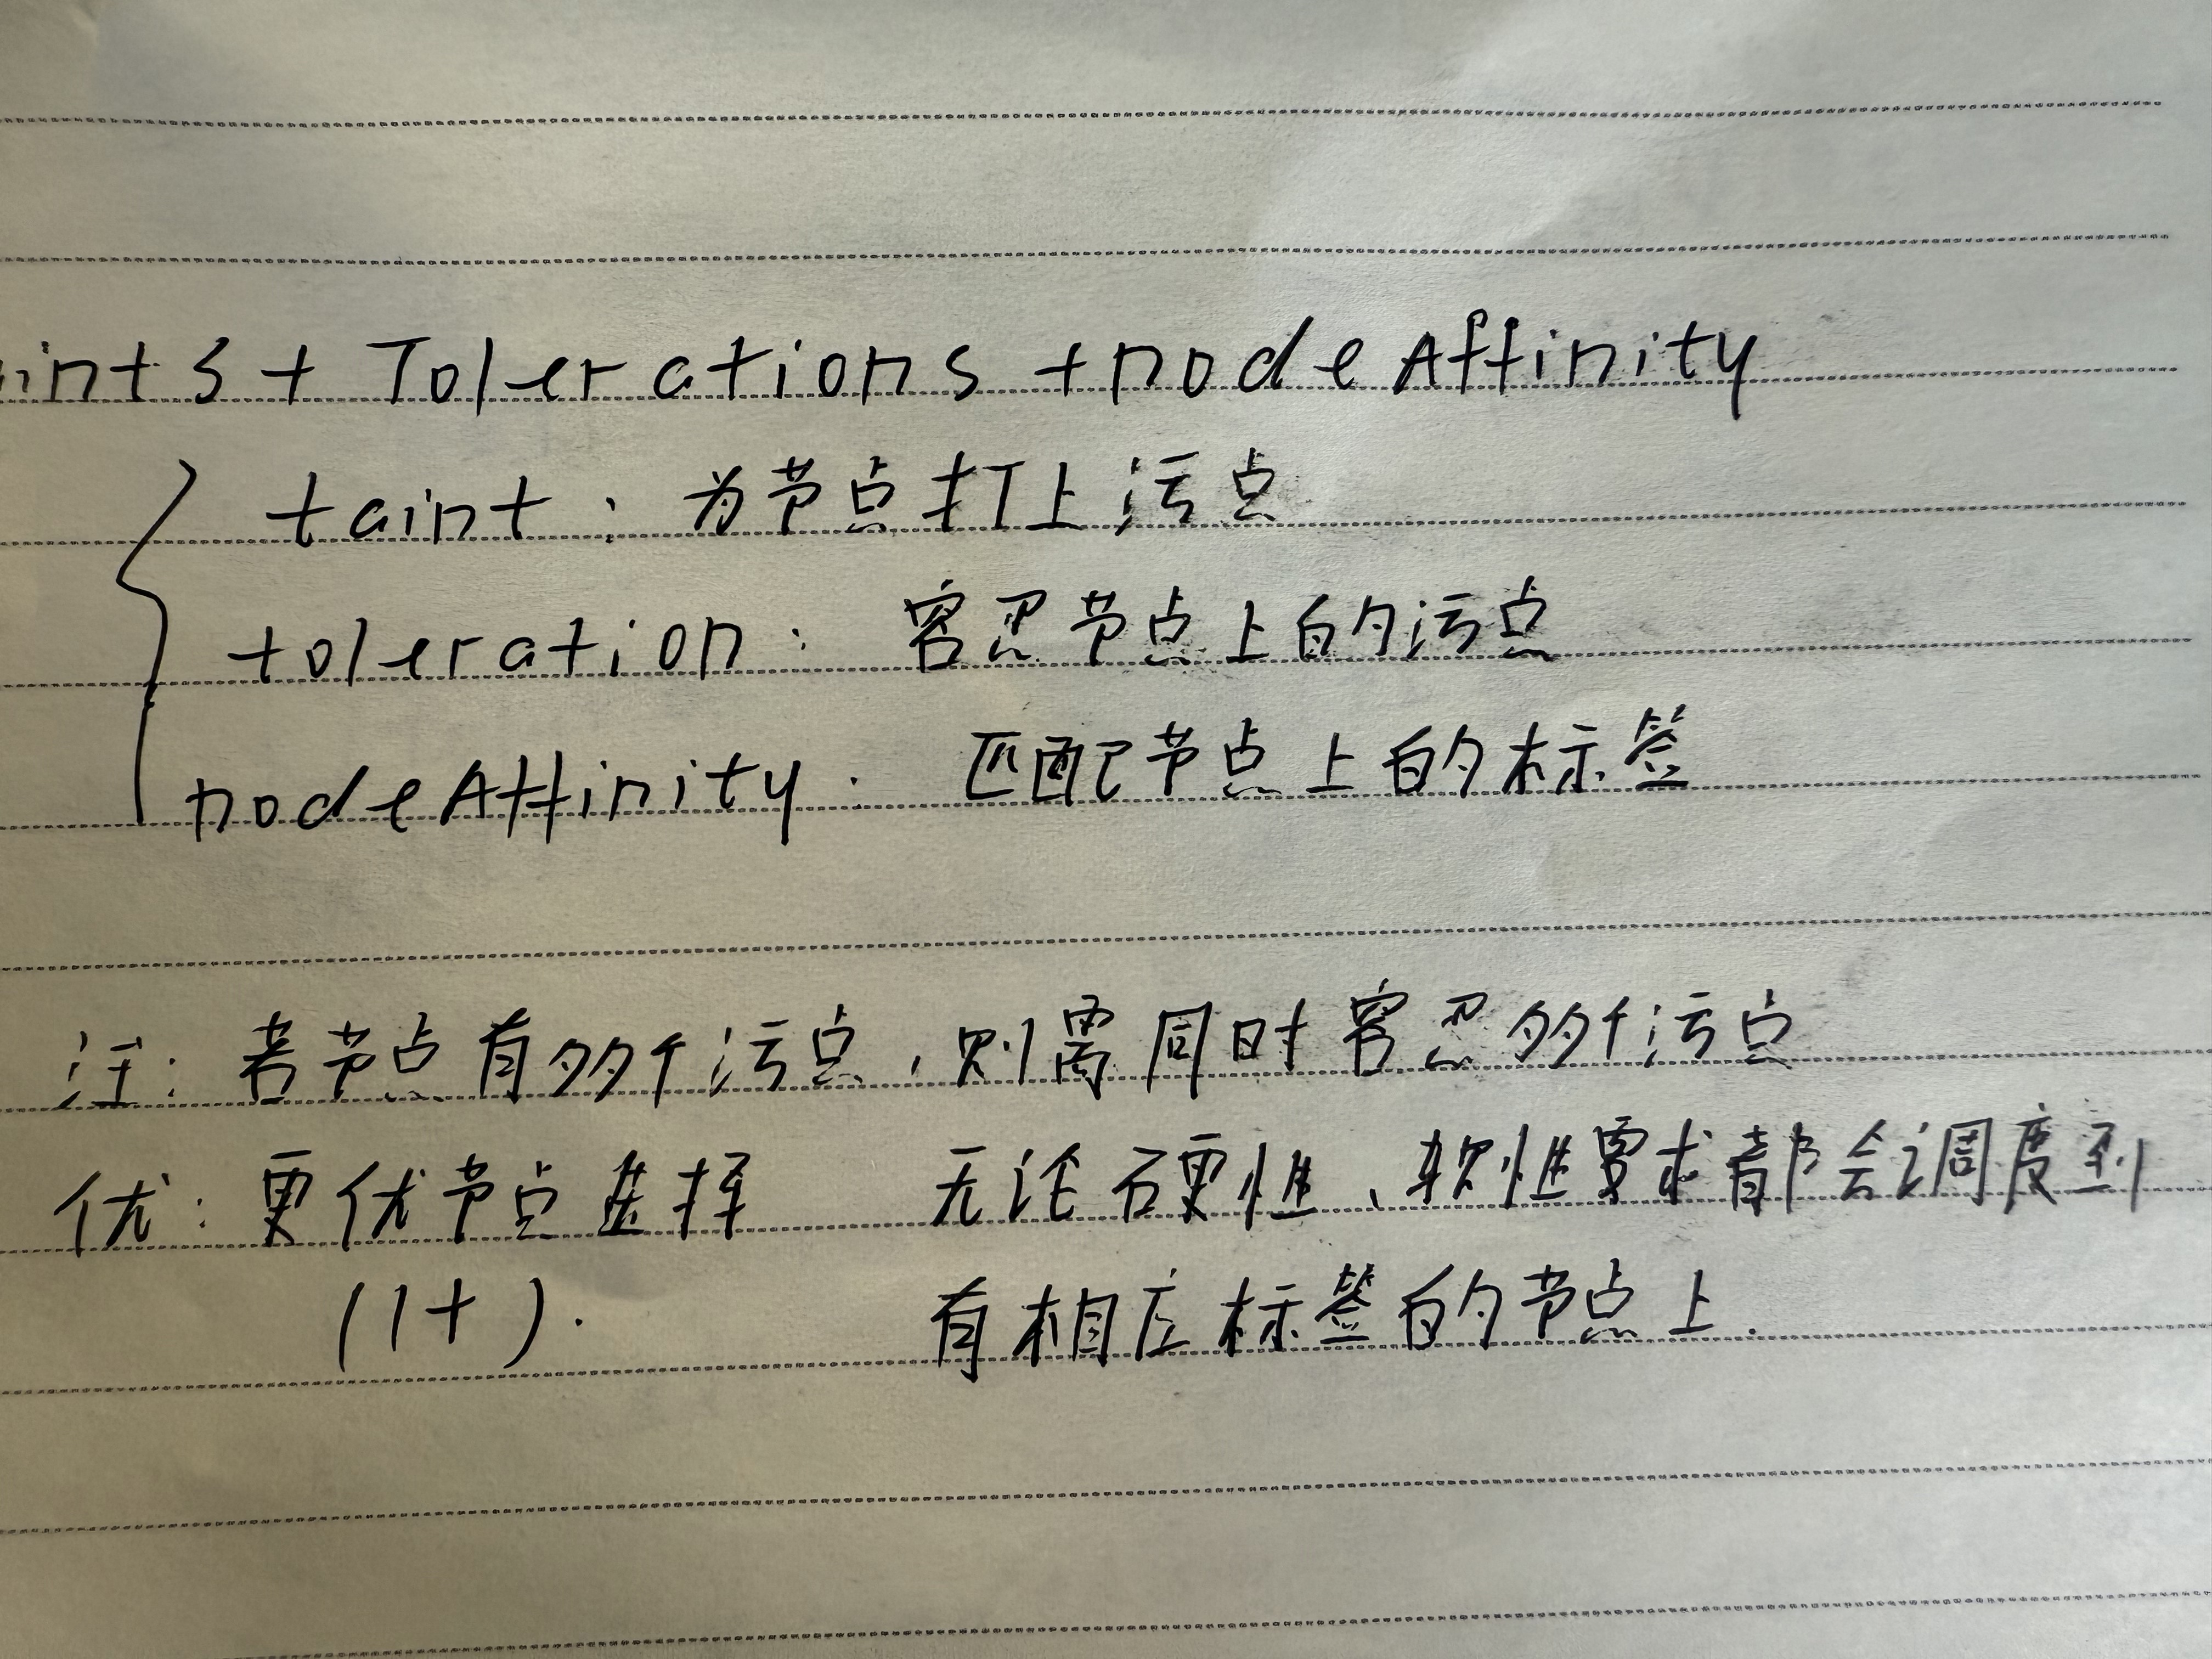 ints + Tolerations + nodeAffinity
taint: 为节点打上污点
toleration: 容忍节点上的污点
nodeAffinity: 匹配节点上的标签
注: 若节点有多个污点, 则需同时容忍多个污点
优: 更优节点选择 无论硬性、软性要求都会调度到
(1+). 有相应标签的节点上.